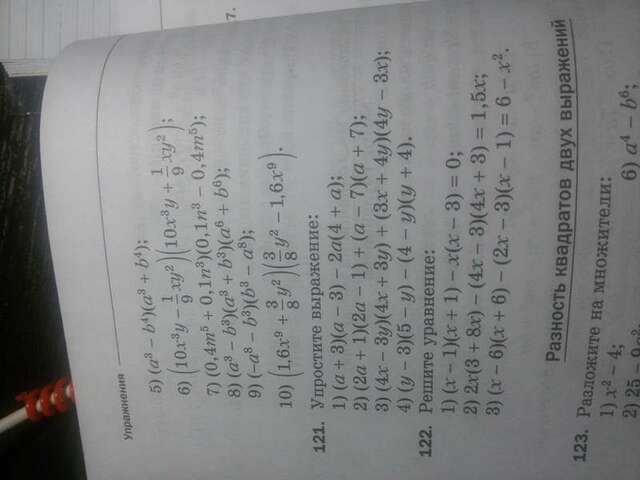 Упражнения
5) (a³ − b⁴)(a³ + b⁴);
6) (10x³y − 1/9 xy²)(10x³y + 1/9 xy²);
7) (0,4m⁵ + 0,1n³)(0,1n³ − 0,4m⁵);
8) (a³ − b³)(a³ + b³)(a⁶ + b⁶);
9) (−a⁸ − b³)(b³ − a⁸);
10) (1,6x⁹ + 3/8 y²)(3/8 y² − 1,6x⁹).
121. Упростите выражение:
1) (a + 3)(a − 3) − 2a(4 + a);
2) (2a + 1)(2a − 1) + (a − 7)(a + 7);
3) (4x − 3y)(4x + 3y) + (3x + 4y)(4y − 3x);
4) (y − 3)(5 − y) − (4 − y)(y + 4).
122. Решите уравнение:
1) (x − 1)(x + 1) − x(x − 3) = 0;
2) 2x(3 + 8x) − (4x − 3)(4x + 3) = 1,5x;
3) (x − 6)(x + 6) − (2x − 3)(x − 1) = 6 − x².
Разность квадратов двух выражений
123. Разложите на множители:
1) x² − 4; 6) a⁴ − b⁶;
2) 25 −
7.